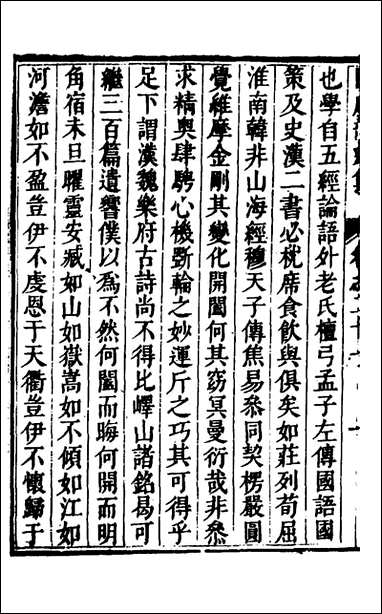 也學自五經論語外老氏檀弓孟子左傳國語國
策及史漢二書必梲席食飲與俱矣如莊列荀屈
淮南韓非山海經穆天子傳焦易叅同契楞嚴圓
覺維摩金剛其變化開闔何其窈冥曼衍哉非叅
求精奥肆騁心機斲輪之妙運斤之巧其可得乎
足下謂漢魏樂府古詩尚不得比嶧山諸銘曷可
繼三百篇遺響僕以爲不然何闔而晦何開而明
角宿未旦曜靈安臧如山如嶽嵩如不傾如江如
河澹如不盈豈伊不虔恩于天衢豈伊不懷歸于